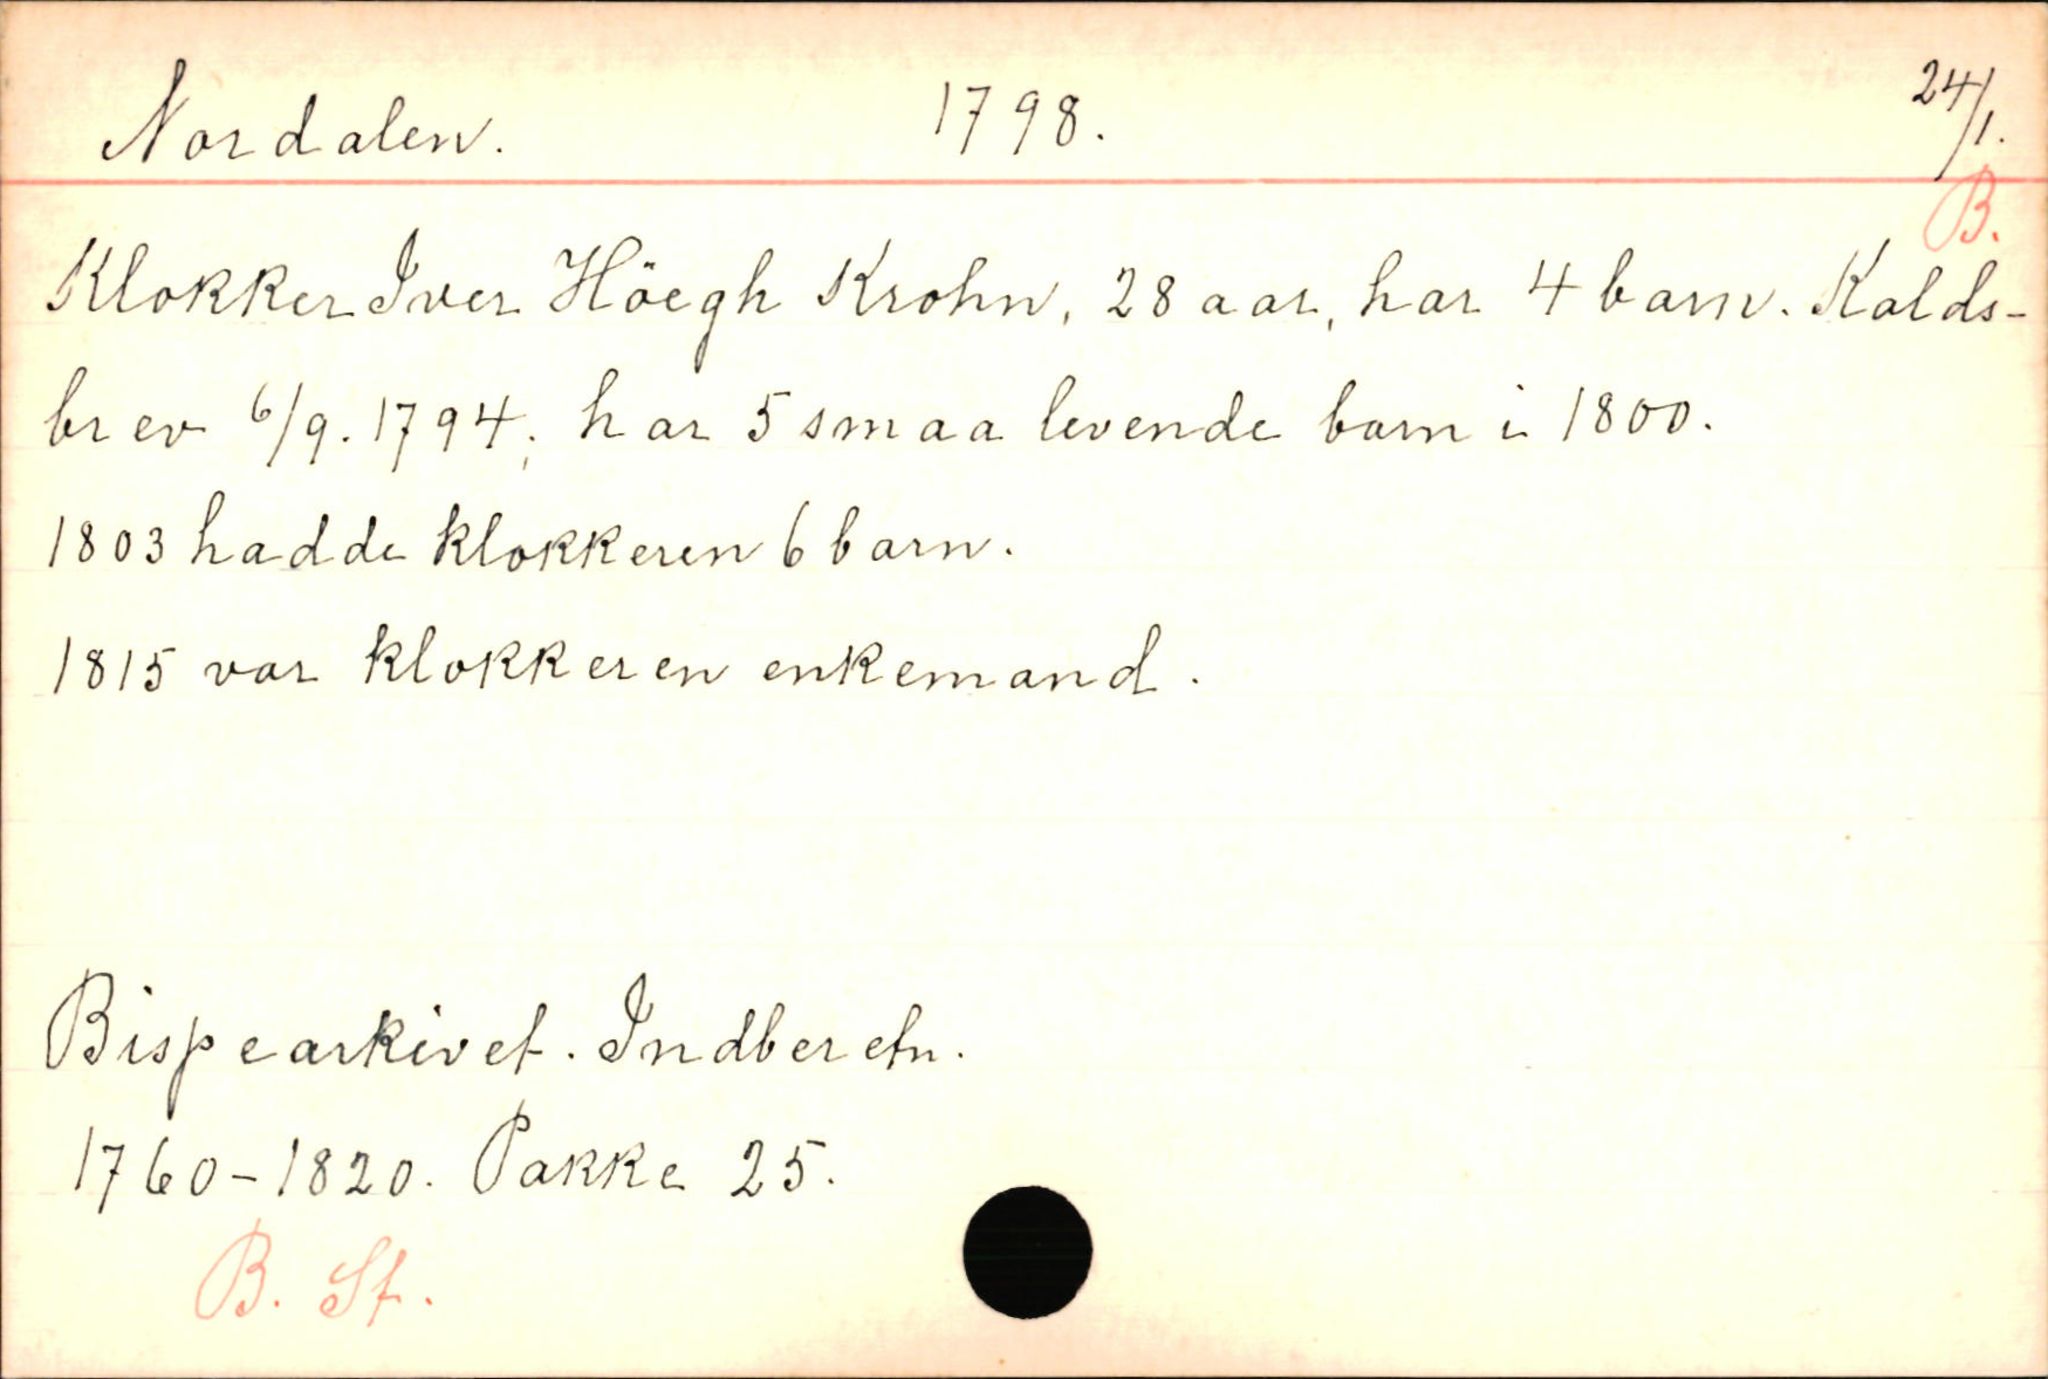 Nordalen. 1798. 24/1.
B.
Klokker Iver Höegh Krohn, 28 aar, har 4 barn. Kalds-
brev 6/9. 1794; har 5 smaa levende barn i 1800.
1803 hadde klokkeren 6 barn.
1815 var klokkeren enkemand.
Bispearkivet. Indberetn.
1760-1820. Pakke 25.
B. St.